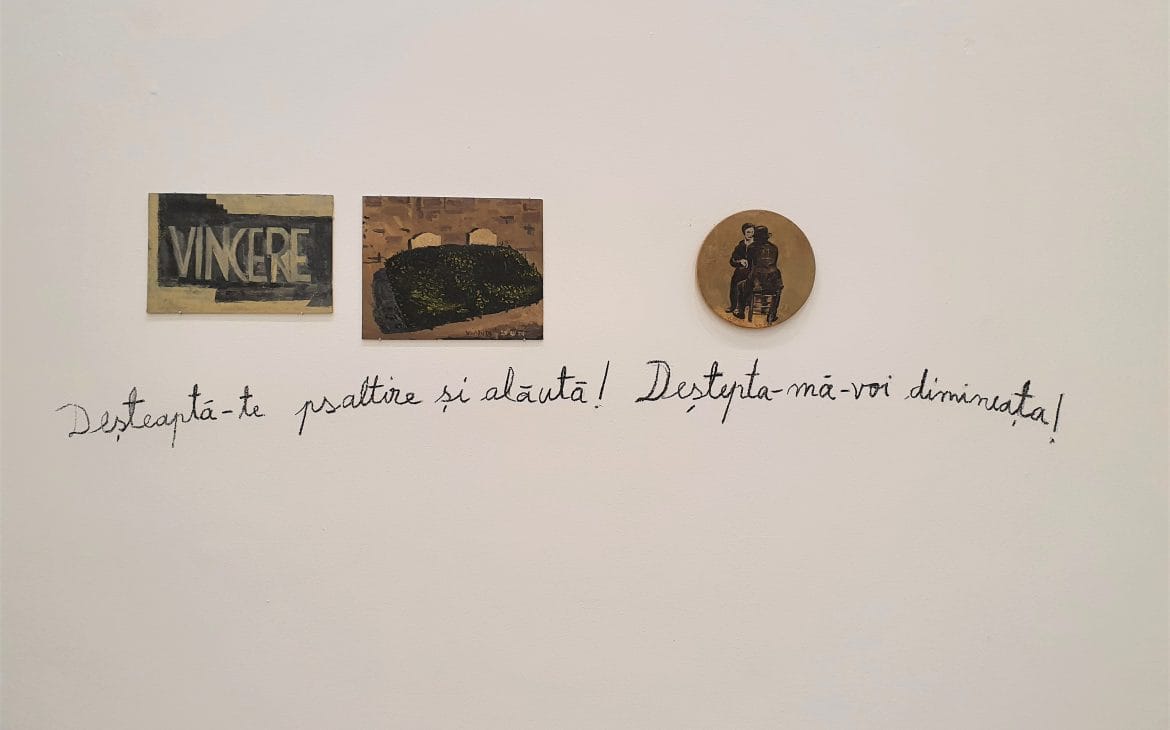 VINCERE
Deșteaptă-te psaltire și alăută! Deștepta-mă-voi dimineața!